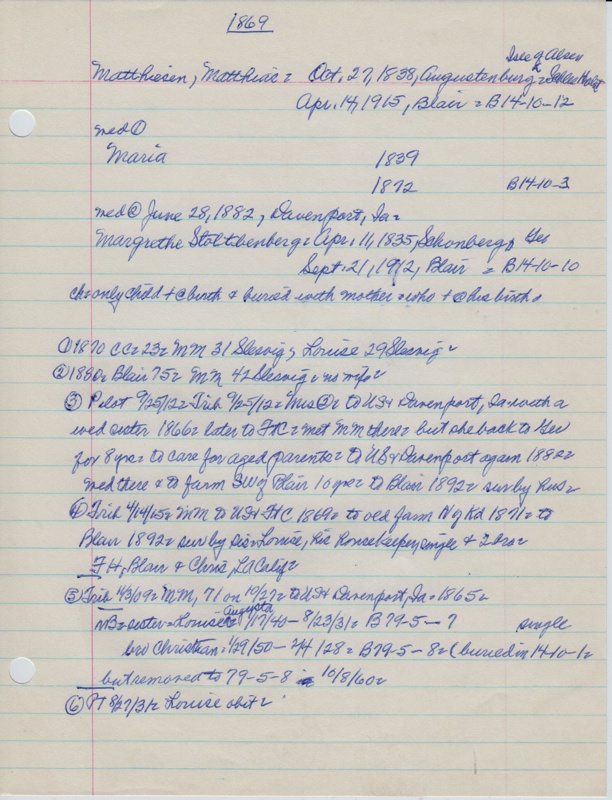 1869
Isle of Alsen
Matthiesen, Matthias = Oct. 27, 1838, Augustenburg = Schles Holst
Apr. 14, 1915, Blair = B14-10-12
med ①
Maria 1839
1872 B14-10-3
med ② June 28, 1882, Davenport, Ia =
Margrethe Stoltbenberg = Apr. 11, 1835, Schonberg, Ger
Sept. 21, 1912, Blair = B14-10-10
ch = only child + @ birth & buried with mother who + @ his birth
① 1870 CC = 23 = MM 31 Slesvig, Louise 29 Slesvig =
② 1880 = Blair 75 = MM 42 Slesvig = no wife =
③ Pilot 9/25/12 = Trib 9/25/12 = Mrs ② = to US & Davenport, Ia = with a
wed sister 1866 = later to FtC = met MM there = but she back to Ger
for 8 yrs = to care for aged parents = to US & Davenport again 1882 =
med there & to farm SW of Blair 10 yrs = to Blair 1892 = sur by hus =
④ Trib 4/14/15 = MM to US & FtC 1869 = to old farm N of Kd 1871 = to
Blair 1892 = sur by sis = Louise, his housekeeper, single & 2 bro =
FH, Blair & Chris, LA Calif =
⑤ Trib 4/3/09 = MM, 71 on 10/27 = to US & Davenport, Ia = 1865 =
NB = sister = Louise Augusta = 1/17/40 - 8/23/31 = B79-5-7 single
bro Christian = 1/29/50 - 2/4/28 = B79-5-8 = (buried in 14-10-1 =
but removed to 79-5-8 10/8/60 =
⑥ PT 8/27/31 = Louise obit =